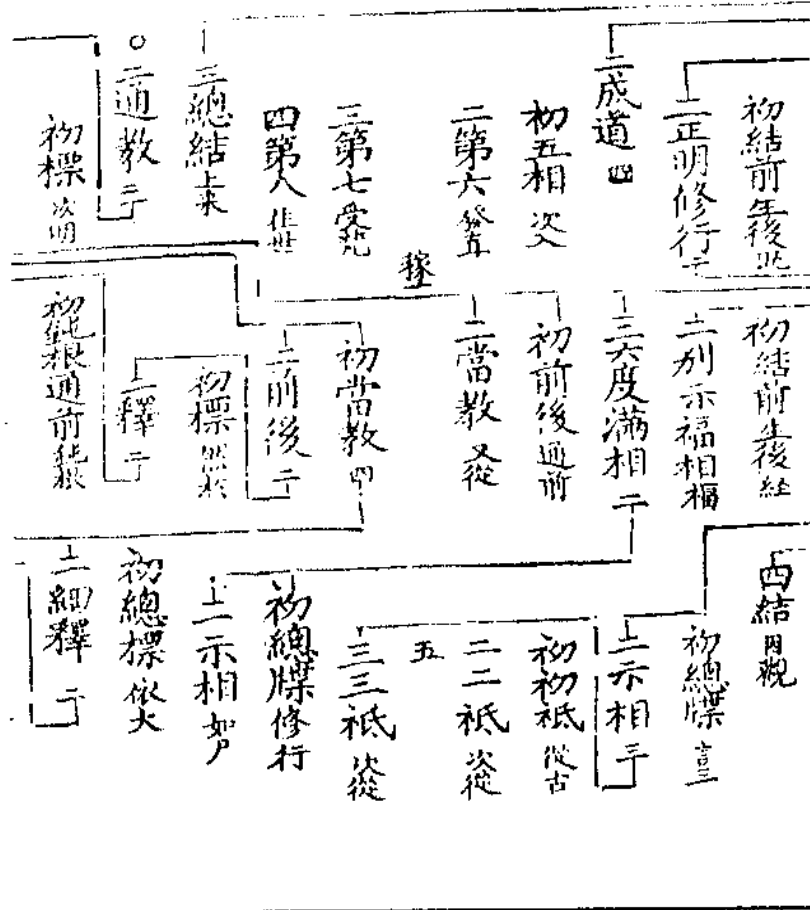 初結前生後
二正明修行二
二成道四
初五相次
二第六
三第七受
四第八
三總結上來
○二通教二
初標次明
初結前生後
二別示福相福
三六度滿相二
初前後通前
二當教又從
初當教四
二前後二
初標
二釋二
初鈍根通前鈍根
四結
初總牒
二示相三
初初祇從古
二二祇次從
五
三三祇次從
初總牒修行
二示相如尸
初總標依大
二細釋二